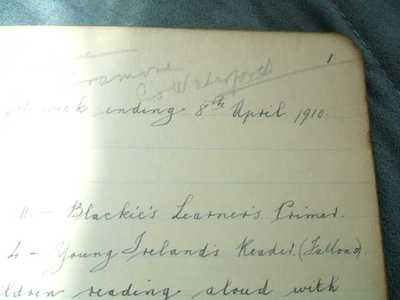 1
Tramore
Co Waterford
Week ending 8th April 1910.
11 - Blackie's Learner's Primer.
4 - Young Ireland's Reader. (Fallons).
ldren reading aloud with